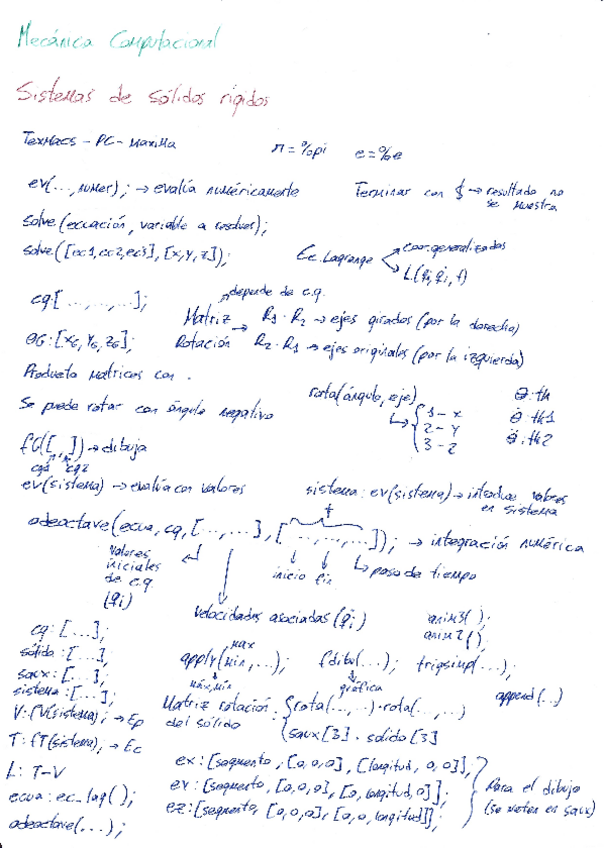 Mecánica Computacional
Sistemas de sólidos rígidos
TexMacs - PC - Maxima
π = %pi e = %e
ev(..., numer); → evalúa numéricamente
Terminar con $ → resultado no se muestra
solve(ecuación, variable a resolver);
solve([ec1,ec2,ec3],[x,y,z]);
Ec. Lagrange
coor. generalizadas
L(qi, q̇i, t)
cq:[..., ..., ...];
depende de c.q.
OG:[xG, yG, zG];
Matriz Rotación → R1 · R2 → ejes girados (por la derecha)
R2 · R1 → ejes originales (por la izquierda)
Producto matrices con .
Se puede rotar con ángulo negativo
rota(ángulo, eje)
1 - x
2 - y
3 - z
θ: th
θ̇: th1
θ̈: th2
fG([ , ]) → dibuja
cq1 cq2
ev(sistema) → evalúa con valores
sistema: ev(sistema) → introduce valores en sistema
odeoctave(ecua, cq, [..., ...], [..., ..., ...]); → integración numérica
t
valores iniciales de c.q (qi)
inicio fin
paso de tiempo
velocidades asociadas (q̇i)
anim3();
anim2();
cq: [...];
sólido: [...];
saux: [...];
sistema: [...];
V: fV(sistema); → Ep
T: fT(sistema); → Ec
L: T-V
ecua: ec_lag();
odeoctave(...);
max
apply(min, ...);
máx, mín
fdibu(...);
gráfica
trigsimp(...);
append(...)
Matriz rotación del sólido:
rota(..., ...) · rota(..., ...)
saux[3] · solido[3]
ex:[segmento, [0,0,0], [longitud, 0,0]];
ey:[segmento, [0,0,0], [0, longitud, 0]];
ez:[segmento, [0,0,0], [0,0, longitud]];
Para el dibujo (se meten en saux)